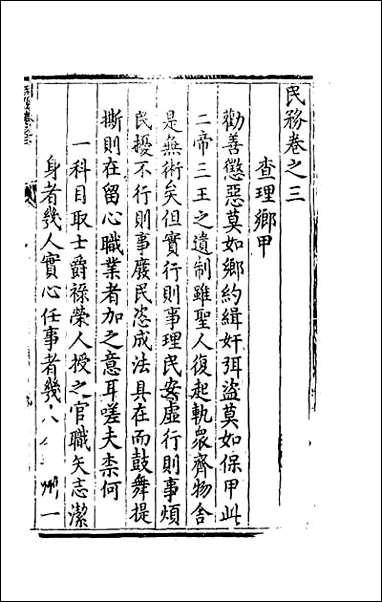 民務卷之三
查理鄉甲
勸善懲惡莫如鄉約緝奸弭盜莫如保甲此
二帝三王之遺制雖聖人復起執眾齊物舍
是無術矣但實行則事理民安虛行則事煩
民擾不行則事廢民恣成法具在而鼓舞提
撕則在留心職業者加之意耳嗟夫柰何
一科目取士爵祿榮人授之官職矢志潔
身者幾人實心任事者幾人